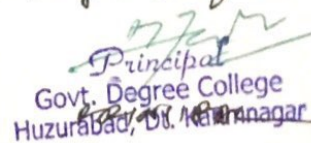 Principal
Govt. Degree College
Huzurabad, Dt. Karimnagar